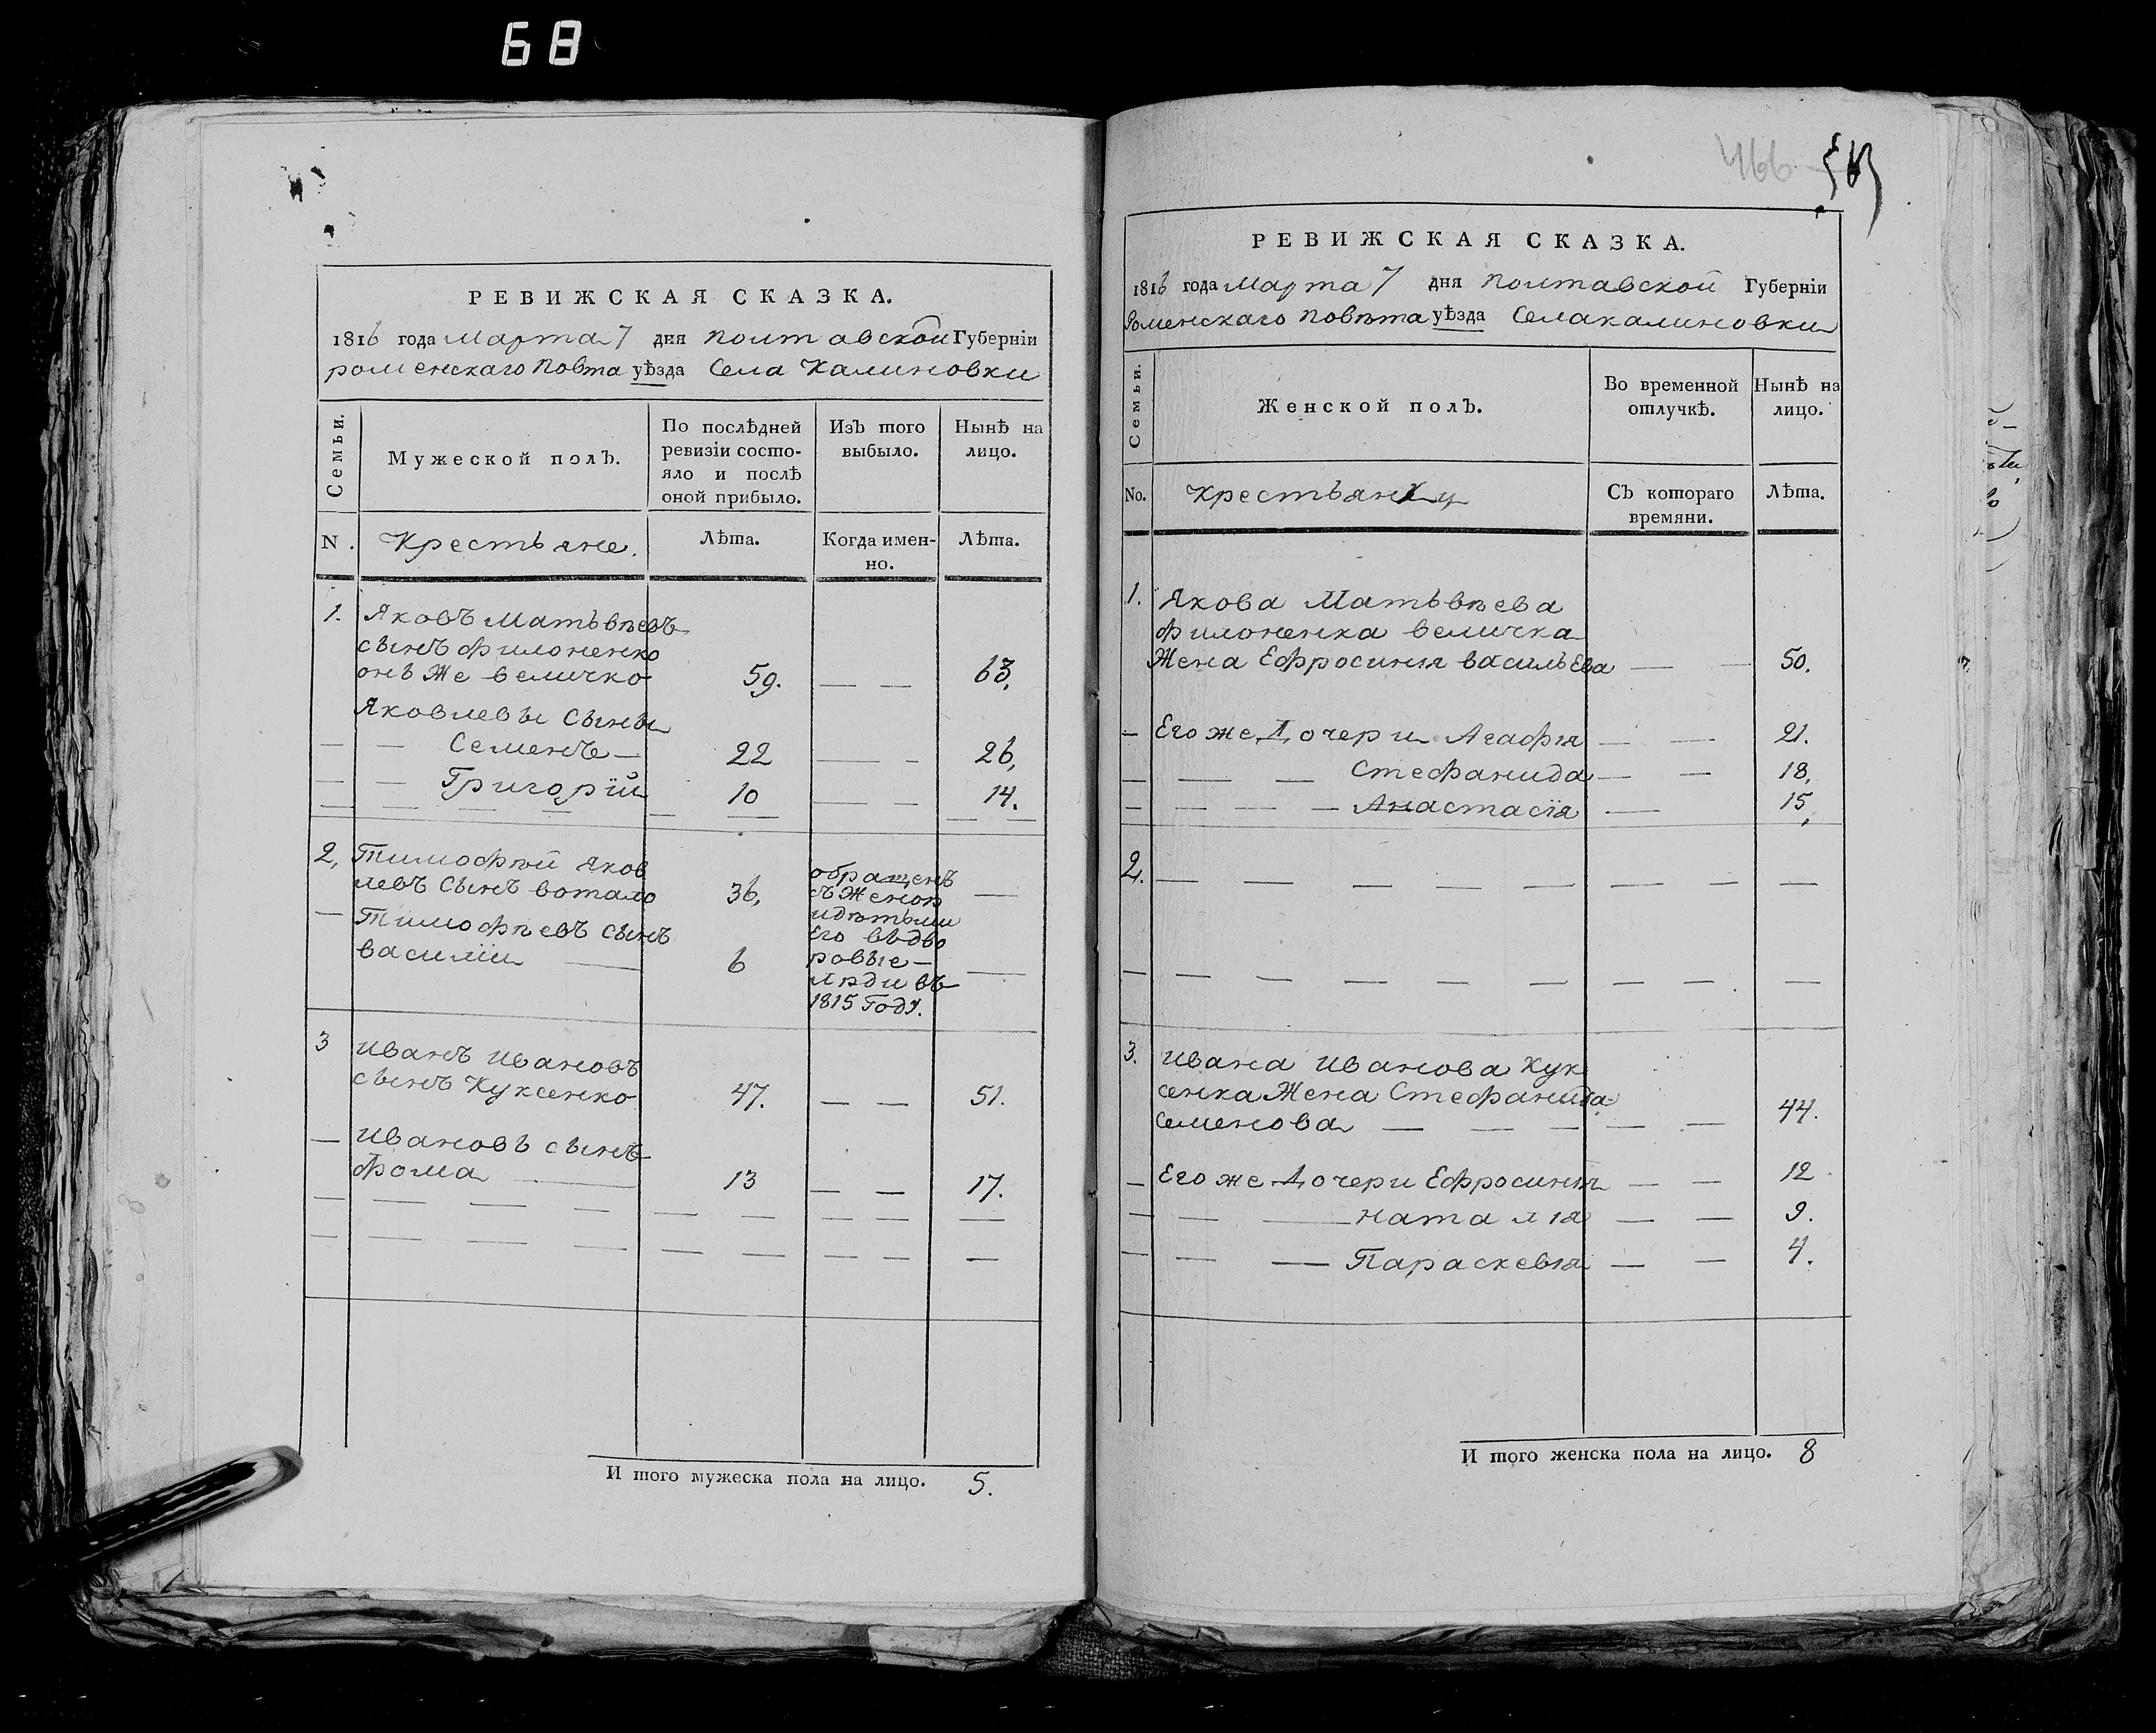 68
РЕВИЖСКАЯ СКАЗКА.
1816 года Марта 7 дня Полтавской Губерніи
роменскаго Повта уѣзда Села Калиновки
Семьи.
Мужеской полъ.
По послѣдней
ревизіи состо-
яло и послѣ
оной прибыло.
Изъ того
выбыло.
Нынѣ на
лицо.
N.
Крестьяне.
Лѣта.
Когда имен-
но.
Лѣта.
1. Яковъ Матьвѣевъ
сынъ филоненко
онъ Же величко 59. — — 63.
Яковлевы Сыны
— — Семенъ — 22 — — 26,
— — Григорїй 10 — — 14.
2, Тимофѣй яков
левъ Сынъ вотало 36, —
— Тимофѣевъ сынъ
василїи — 6 —
обращенъ
съ Женою
идѣтьми
Его въдво
ровые —
люди въ
1815 Году.
3 иванъ ивановъ
сынъ Куксенко 47. — — 51.
— ивановъ сынъ
фома — 13 — — 17.
И того мужеска пола на лицо. 5.
466
РЕВИЖСКАЯ СКАЗКА.
1816 года Марта 7 дня Полтавской Губерніи
Роменскаго Повѣта уѣзда Селакалиновки
Семьи.
Женской полъ.
Во временной
отлучкѣ.
Нынѣ на
лицо.
No.
Крестьянки
Съ котораго
времяни.
Лѣта.
1. Якова Матьвѣева
филоненка величка
Жена Ефросинія васильЕва — — 50.
— Его же Дочери Агафія — — 21.
— — — Стефанида — — 18,
— — — — Анастасїя — 15,
2. — — — — — — — — —
— — — — — — — — —
3. ивана иванова Кук
сенка Жена Стефанида
семенова — — — — — 44.
— Его же Дочери Ефросинія — — 12
— — — наталія — — 9.
— — — Параскевія — — 4.
И того женска пола на лицо. 8